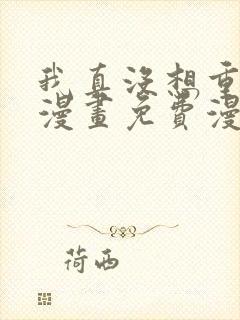 我真没想重
漫畫免費漫
荷西